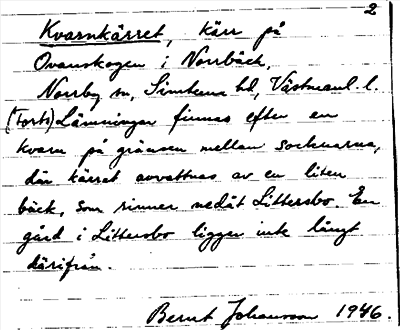 2
Kvarnkärret, kärr på
Ovanskogen i Norrbäck,
Norrby sn, Simtuna hd, Västmanl. l.
(Forts) Lämningar finnas efter en
kvarn på gränsen mellan socknarna,
där kärret avvattnas av en liten
bäck, som rinner nedåt Littersbo. En
gård i Littersbo ligger intk långt
därifrån.
Bernt Johansson 1946.